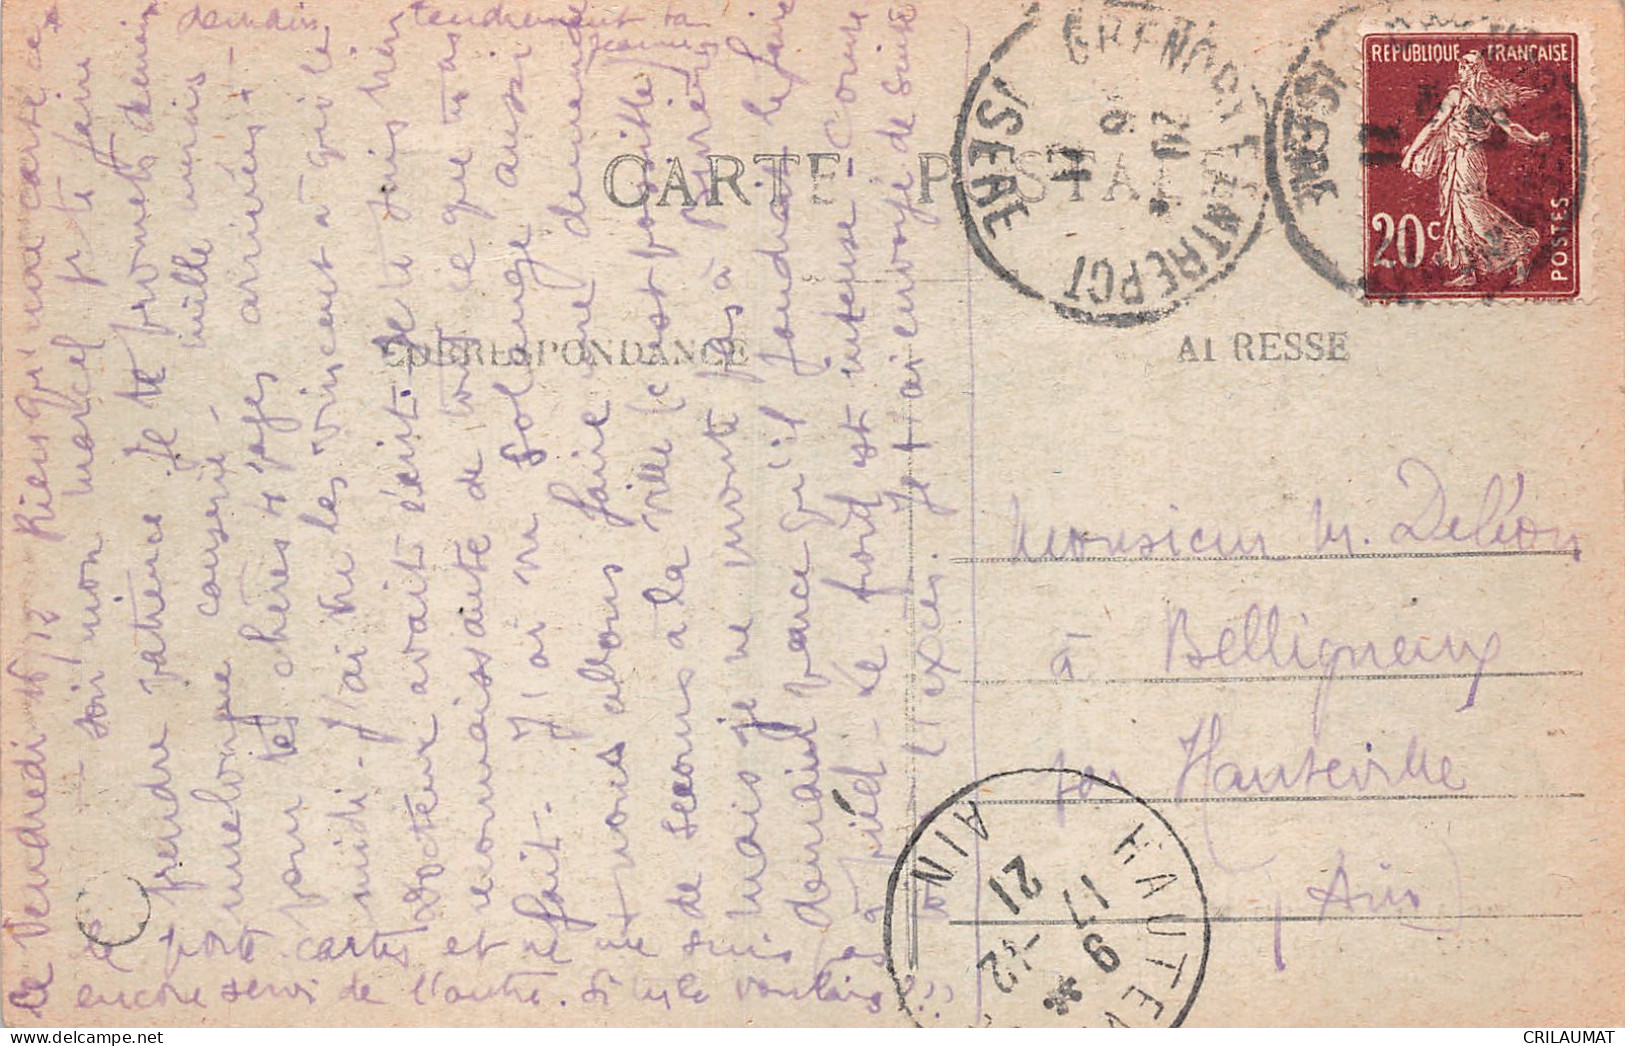 CARTE POSTALE
CORRESPONDANCE
ADRESSE
RÉPUBLIQUE FRANÇAISE
20c
POSTES
GRENOBLE ENTREPOT
ISERE
ISERE
HAUTEV
AIN
17
9
-12
21
Monsieur M. Deléon
à Belligneux
par Hauteville
(Ain)
demain. tendrement ta
Le Vendredi 16/12 Rien qu'une carte ce
soir mon Marcel p. te faire
prendre patience Je te promets demain
une longue causerie, mille mercis
pour tes chères 4 pages arrivées à
midi. J'ai vu les Vincent à qui le
Docteur avait écrit. Je te suis très
reconnaissante de tout ce que tu as
fait. J'ai vu Solange aussi
et nous allons faire une demande
de secours à la ville (c'est possible)
mais je ne monte pas à
demain parce qu'il faudrait le faire
à pied - Le froid est intense. Comme
Je t'ai envoyé de suite
l'exprès.
le porte. cartes et ne me suis pas
encore servi de l'autre. Si tu le voulais !!!
CRILAUMAT